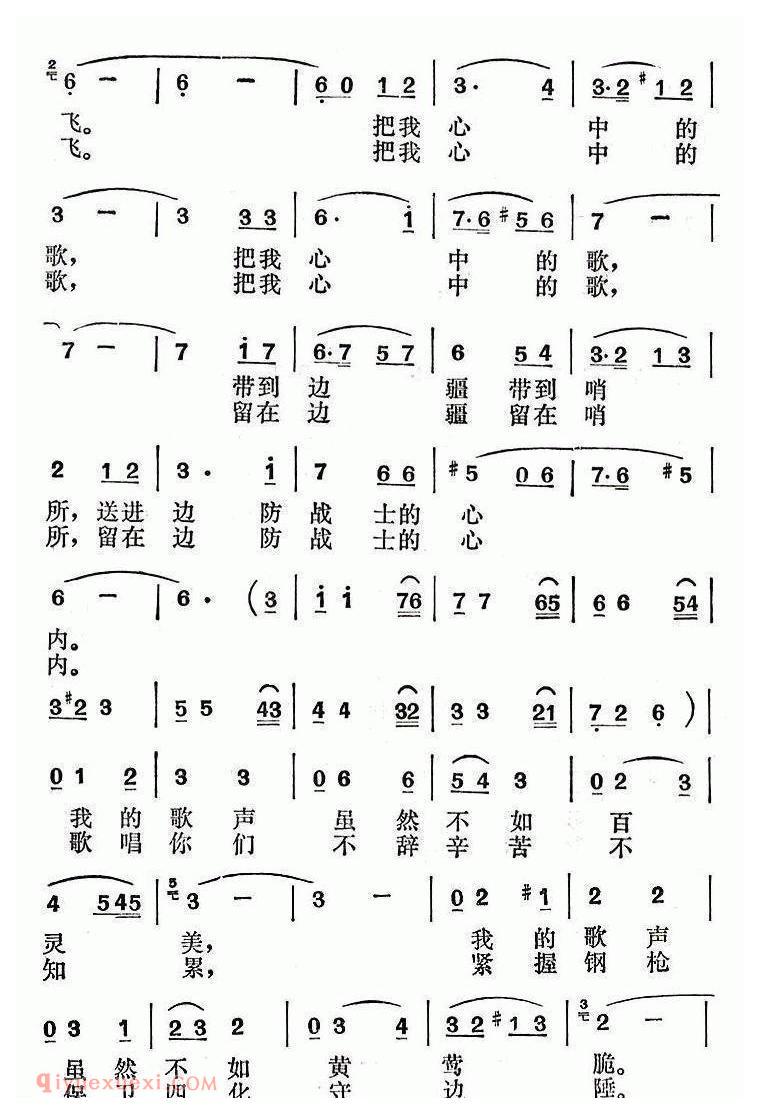 2
6 — | 6 — | 6 0 1 2 | 3· 4 | 3·2 #1 2 |
飞。 把我 心 中 的
飞。 把我 心 中 的
3 — | 3 3 3 | 6· i | 7·6 #5 6 | 7 — |
歌, 把我 心 中 的 歌,
歌, 把我 心 中 的 歌,
7 — | 7 i 7 | 6·7 5 7 | 6 5 4 | 3·2 1 3 |
带到 边 疆 带到 哨
留在 边 疆 留在 哨
2 1 2 | 3· i | 7 6 6 | #5 0 6 | 7·6 #5 |
所, 送进 边 防 战 士的 心
所, 留在 边 防 战 士的 心
6 — | 6· (3 | i i 76 | 7 7 65 | 6 6 54 |
内。
内。
3#2 3 | 5 5 43 | 4 4 32 | 3 3 21 | 7 2 6 ) |
0 1 2 | 3 3 | 0 6 6 | 5 4 3 | 0 2 3 |
我 的 歌 声 虽 然 不 如 百
歌 唱 你 们 不 辞 辛 苦 不
4 545 | 5 3 — | 3 — | 0 2 #1 | 2 2 |
灵 美, 我 的 歌 声
知 累, 紧 握 钢 枪
0 3 1 | 2 3 2 | 0 3 4 | 3 2 #1 3 | 3 2 — |
虽 然 不 如 黄 莺 脆。
保 卫 四 化 守 边 陲。
qiyuexuexi.com